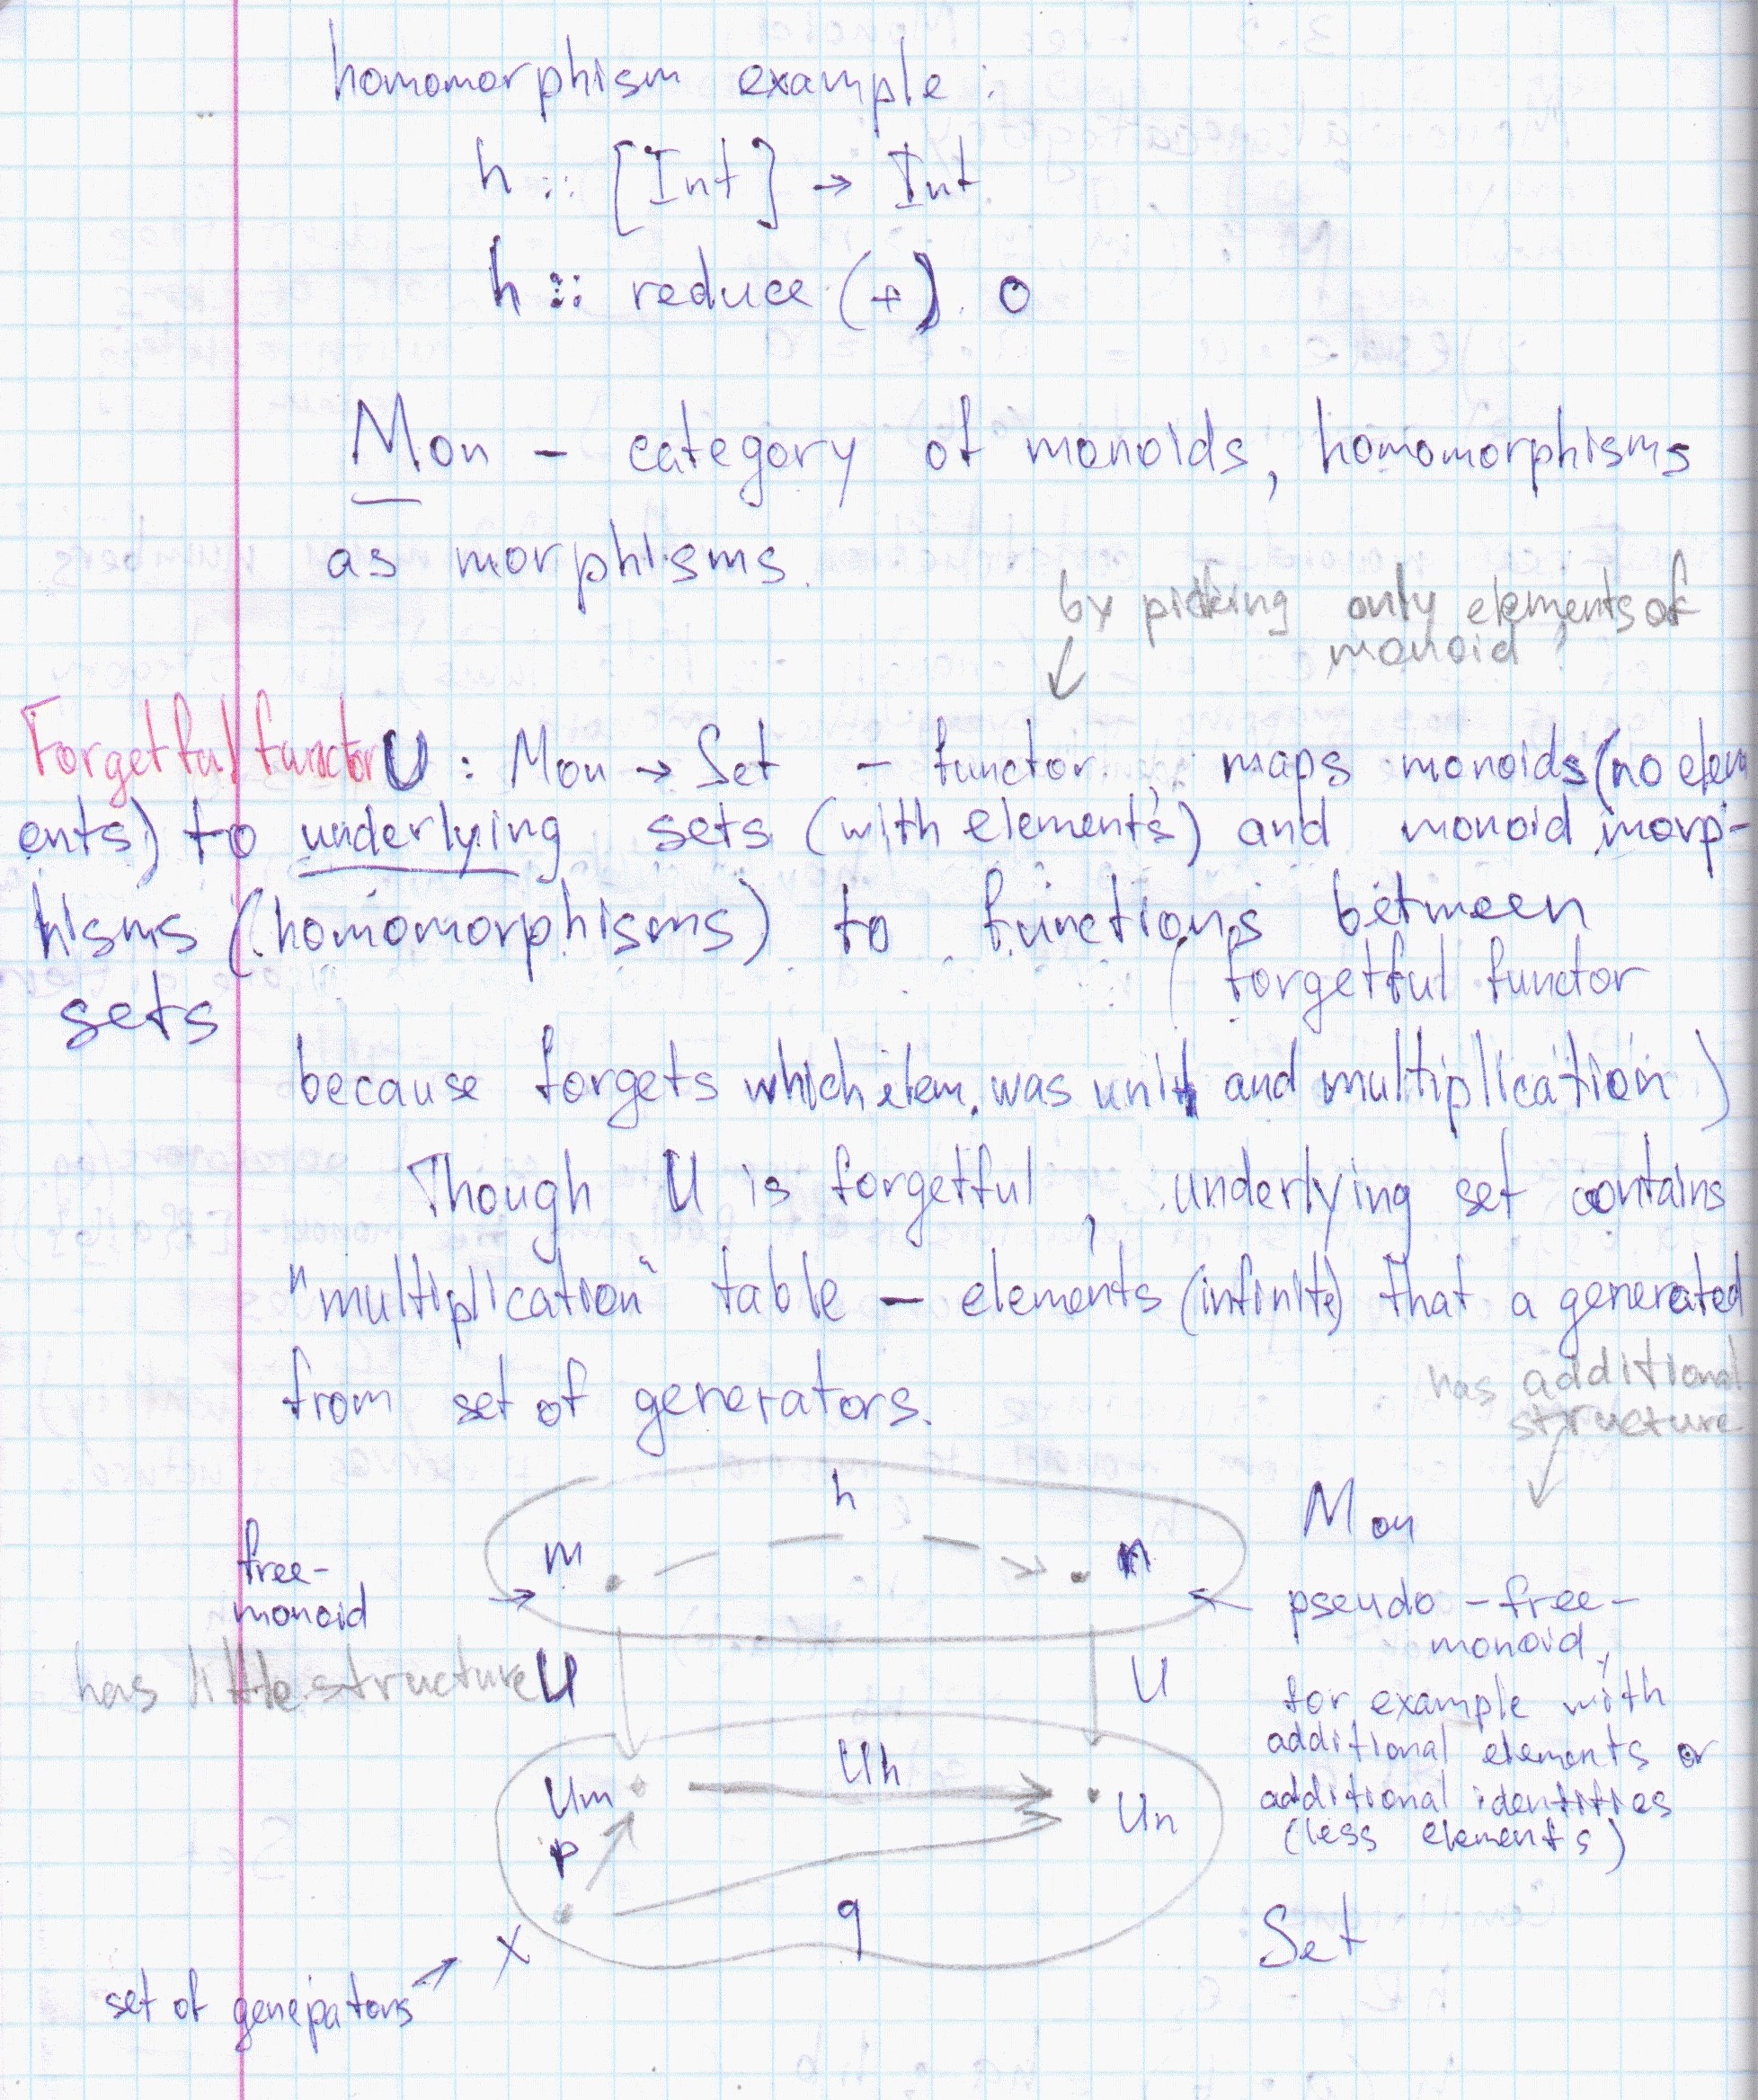 homomorphism example:
h :: [Int] → Int
h :: reduce (+) 0
Mon - category of monoids, homomorphisms
as morphisms.
by picking only elements of
monoid
↓
Forgetful functor U : Mon → Set - functor, maps monoids (no elem
ents) to underlying sets (with elements) and monoid morp-
hisms (homomorphisms) to functions between
sets
( forgetful functor
because forgets which elem. was unit and multiplication )
Though U is forgetful, underlying set contains
"multiplication" table - elements (infinite) that a generated
from set of generators.
has additional
structure
h
Mon
m
n
free-
monoid
pseudo-free-
monoid,
has little structure
U
U
for example with
additional elements or
additional identities
(less elements)
Um
Uh
Un
p
q
Set
x
set of genepators